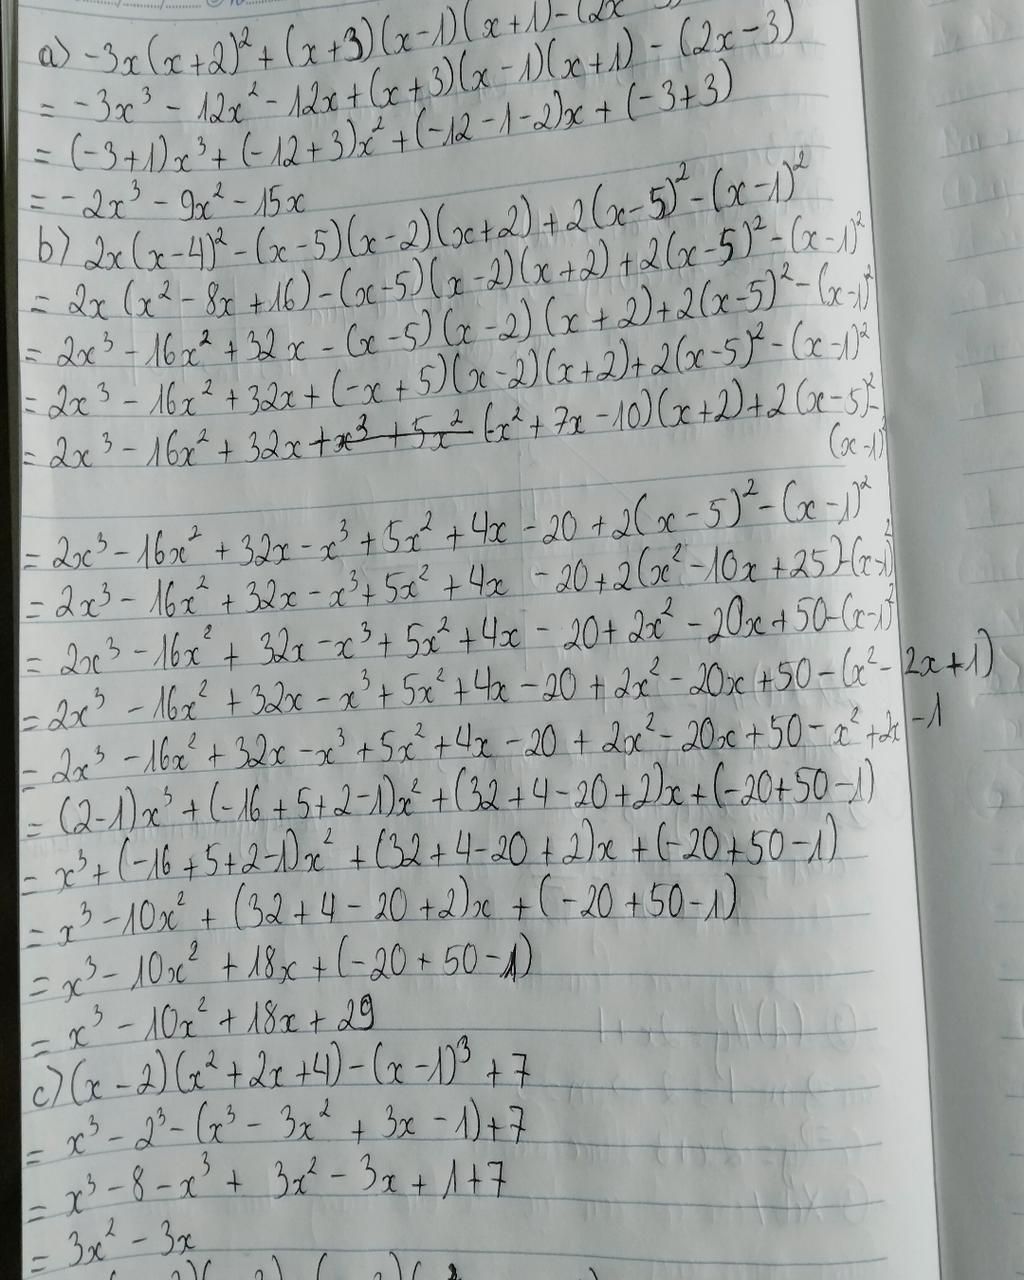 a) -3x(x+2)² + (x+3)(x-1)(x+1) - (2x
= -3x³ - 12x² - 12x + (x+3)(x-1)(x+1) - (2x-3)
= (-3+1)x³ + (-12+3)x² + (-12-1-2)x + (-3+3)
= -2x³ - 9x² - 15x
b) 2x(x-4)² - (x-5)(x-2)(x+2) + 2(x-5)² - (x-1)²
= 2x (x² - 8x + 16) - (x-5)(x-2)(x+2) + 2(x-5)² - (x-1)²
= 2x³ - 16x² + 32x - (x-5)(x-2)(x+2) + 2(x-5)² - (x-1)²
= 2x³ - 16x² + 32x + (-x+5)(x-2)(x+2) + 2(x-5)² - (x-1)²
= 2x³ - 16x² + 32x + x³ + 5x² (-x² + 7x - 10)(x+2) + 2(x-5)² -
(x-1)²
= 2x³ - 16x² + 32x - x³ + 5x² + 4x - 20 + 2(x-5)² - (x-1)²
= 2x³ - 16x² + 32x - x³ + 5x² + 4x - 20 + 2(x² - 10x + 25) - (x-1)²
= 2x³ - 16x² + 32x - x³ + 5x² + 4x - 20 + 2x² - 20x + 50 - (x-1)²
= 2x³ - 16x² + 32x - x³ + 5x² + 4x - 20 + 2x² - 20x + 50 - (x² - 2x + 1)
= 2x³ - 16x² + 32x - x³ + 5x² + 4x - 20 + 2x² - 20x + 50 - x² + 2x - 1
= (2-1)x³ + (-16+5+2-1)x² + (32+4-20+2)x + (-20+50-1)
= x³ + (-16+5+2-1)x² + (32+4-20+2)x + (-20+50-1)
= x³ - 10x² + (32+4-20+2)x + (-20+50-1)
= x³ - 10x² + 18x + (-20+50-1)
= x³ - 10x² + 18x + 29
c) (x-2)(x² + 2x + 4) - (x-1)³ + 7
= x³ - 2³ - (x³ - 3x² + 3x - 1) + 7
= x³ - 8 - x³ + 3x² - 3x + 1 + 7
= 3x² - 3x